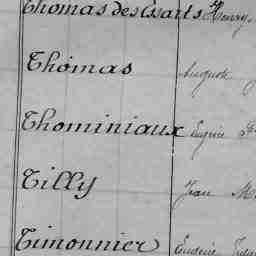 Thomas des Essarts Henry
Thomas Auguste
Thominiaux Eugène
Tilly Jean
Timonnier Eugène